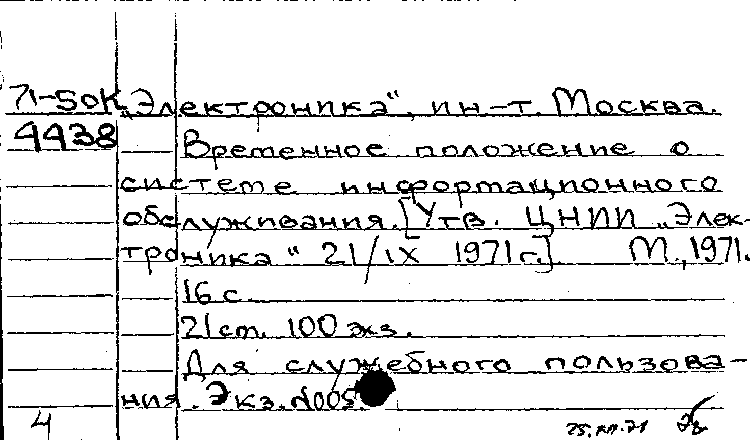 71-5ОК „Электроника", ин-т. Москва.
4438 Временное положение о
системе информационного
обслуживания. [Утв. ЦНИИ „Элек-
троника" 21/IX 1971г.] М., 1971.
16 с.
21 ст. 100 экз.
Для служебного пользова-
ния. Экз. №005
4